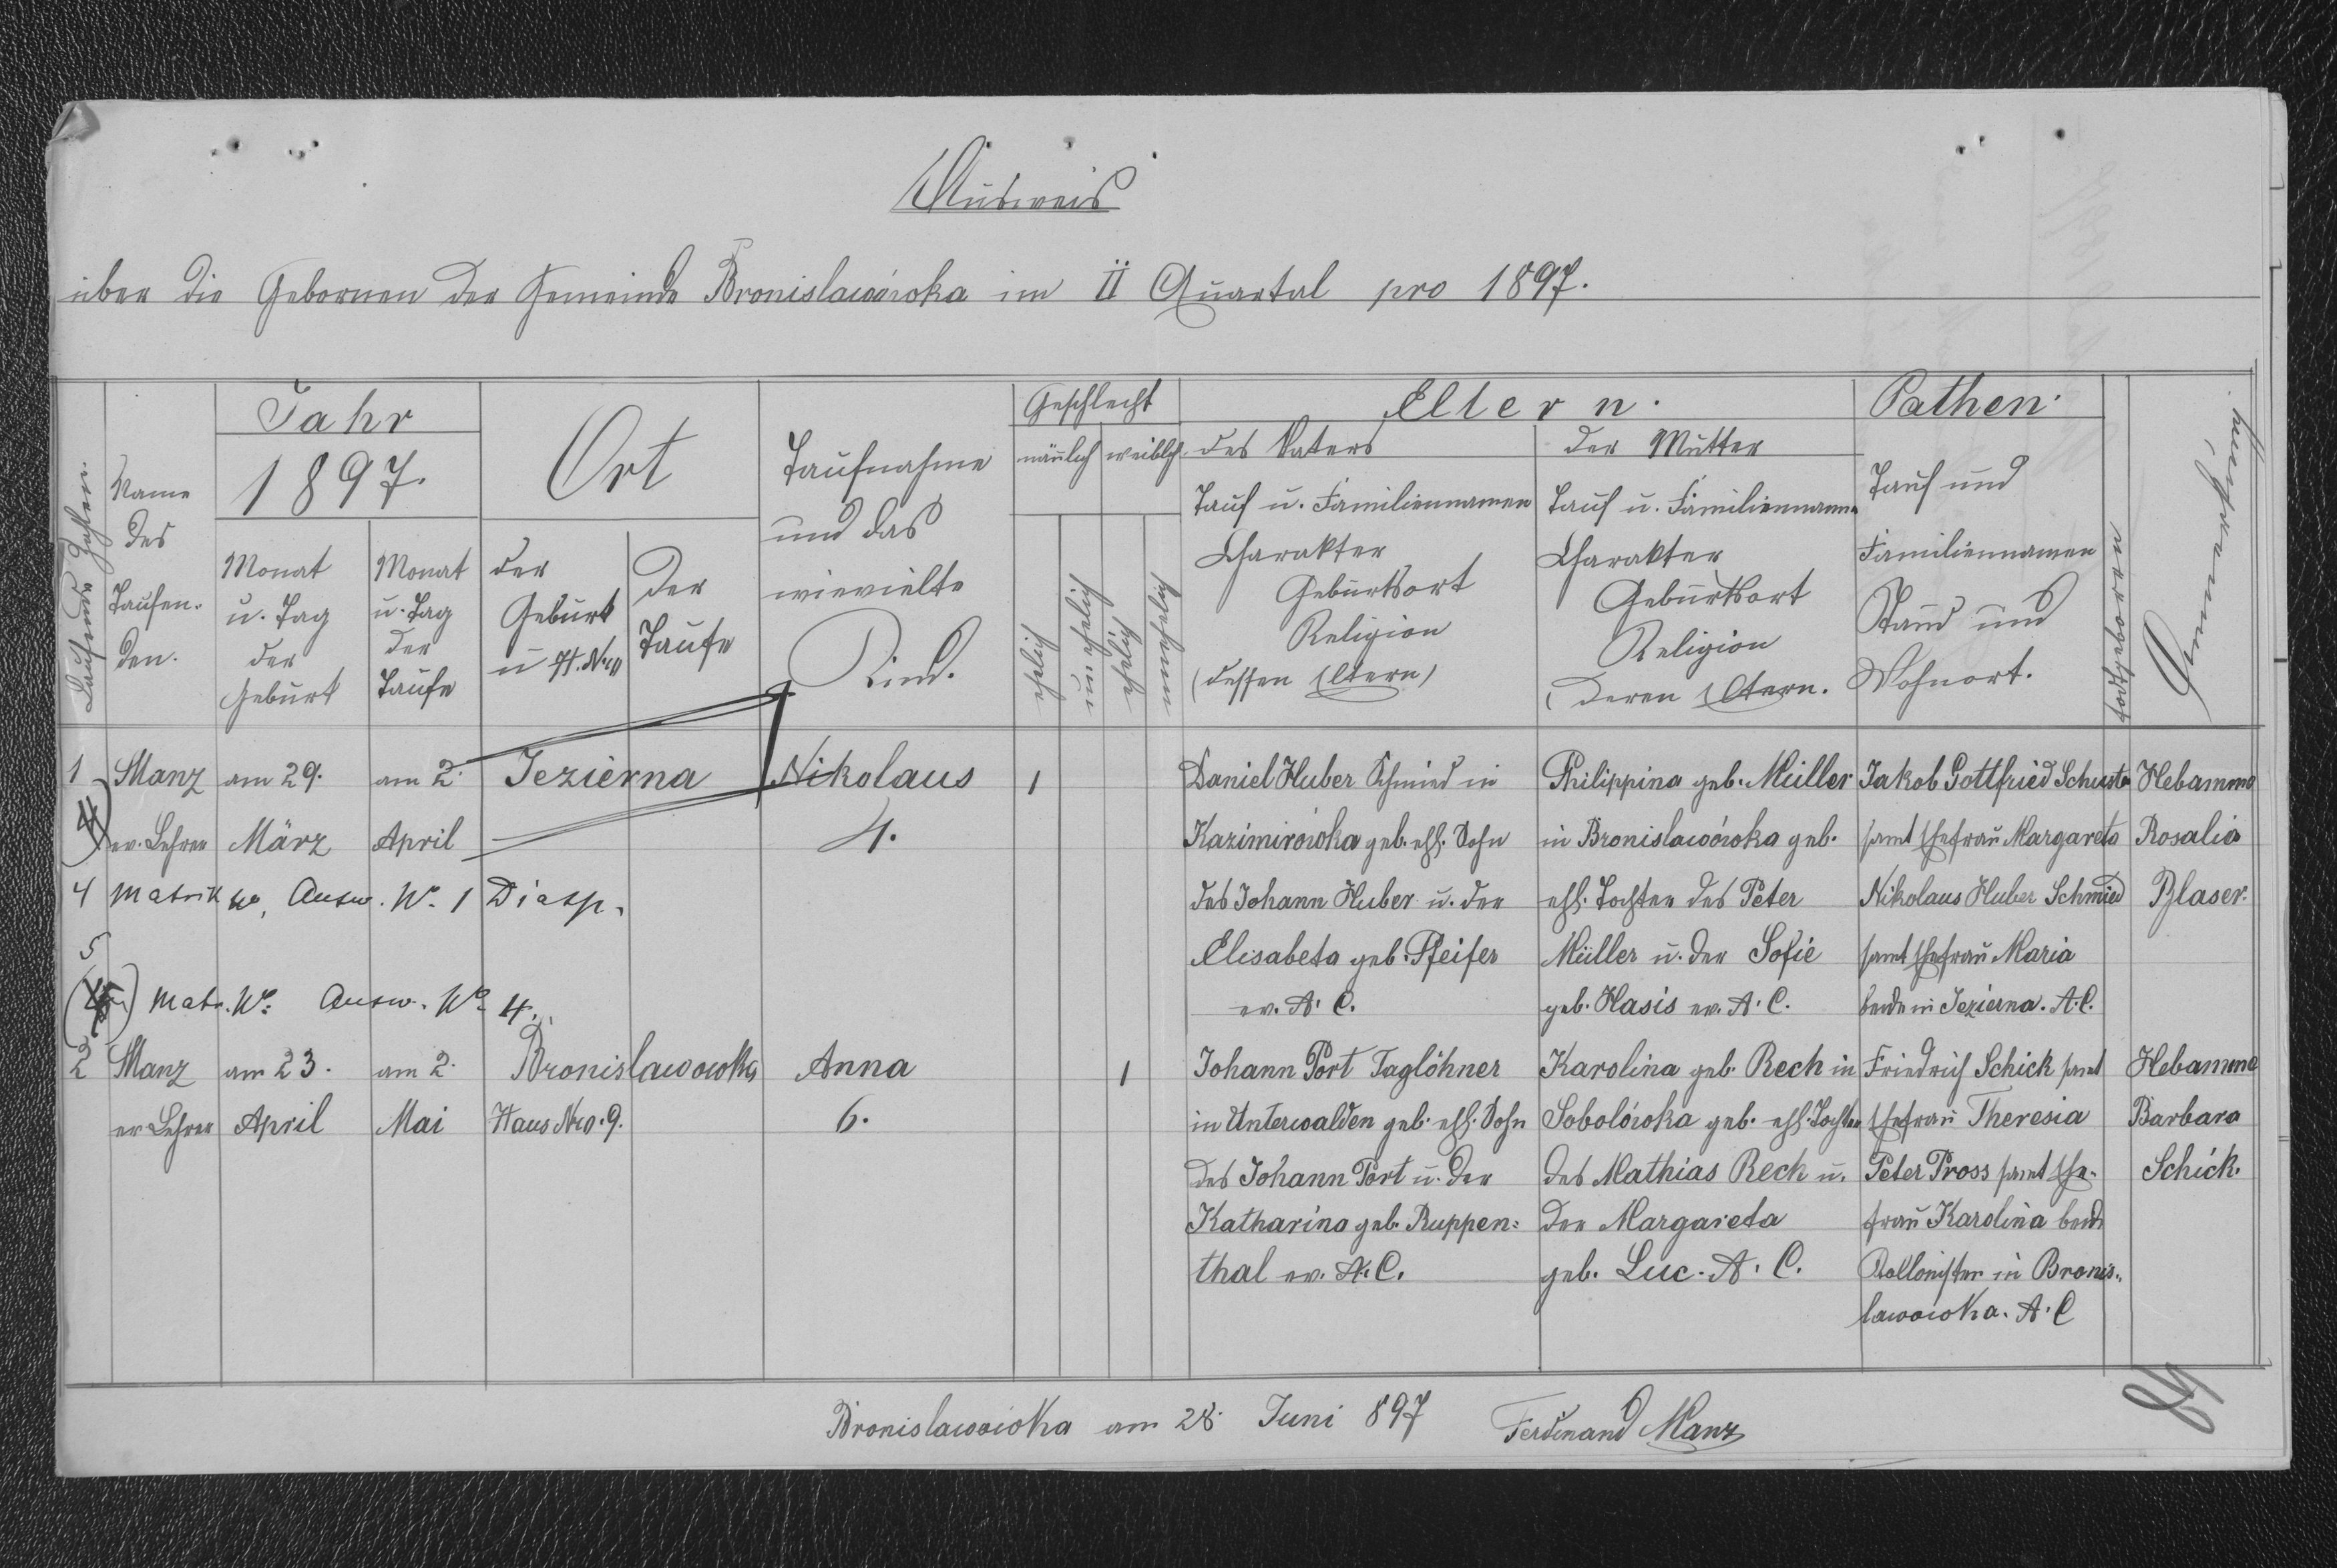 Ausweis
über die Gebornen der Gemeinde Bronislawówka im II Quartal pro 1897.
Laufende Zahlen.
Name
des
Taufen-
den.
Jahr
1897.
Monat
u. Tag
der
Geburt
Monat
u. Tag
der
Taufe
Ort
der
Geburt
u H. Nro
der
Taufe
Taufnahme
und das
wievielte
Kind.
Geschlecht
mänlich
weiblich.
ehelich
unehelich
ehelich
unehelich
Eltern.
des Vaters
Tauf u. Familiennamen
Charakter
Geburtsort
Religion
(dessen Eltern)
der Mutter
Tauf u. Familiennamen
Charakter
Geburtsort
Religion
(deren Eltern.
Pathen.
Tauf und
Familiennamen
Stand und
Wohnort.
todtgeboren
Anmerkung.
1 Manz am 29. am 2. Jezierna Nikolaus 1
4
ev. Lehrer März April 4.
4 Matrik No, Ausw. No 1 Diasp.
Daniel Huber Schmied in
Kazimirówka geb. ehl. Sohn
des Johann Huber u. der
Elisabeta geb. Pfeifer
ev. A. C.
Philippina geb. Müller
in Bronislawówka geb.
ehl. Tochter des Peter
Müller u. der Sofie
geb. Hasis ev. A. C.
Jakob Gottfried Schuster
samt Ehefrau Margareta
Nikolaus Huber Schmied
samt Ehefrau Maria
beide in Jezierna. A. C.
Hebamme
Rosalia
Blaser.
5
Matr. No. Ausw. No 4.
2 Manz am 23. am 2. Bronislawowka Anna 1
ev Lehrer April Mai Haus Nro. 9. 6.
Johann Port Taglöhner
in Unterwalden geb. ehl. Sohn
des Johann Port u. der
Katharina geb. Ruppen=
thal ev. A. C.
Karolina geb. Rech in
Sobolówka geb. ehl. Tochter
des Mathias Rech u.
der Margareta
geb. Luc. A. C.
Friedrich Schick samt
Ehefrau Theresia
Peter Pross samt Ehe-
frau Karolina beide
Kollonisten in Bronis-
lawowka. A. C
Hebamme
Barbara
Schick.
Bronislawowka am 28. Juni 897 Ferdinand Manz